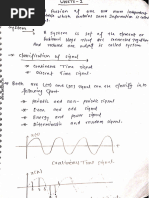 UNIT:-1
fusion of one are more
which contains some information is called
System :-
A system is set of the element or
functional block which are connected together
and produce an output is called system.
→ Classification of signal
→ Continuous Time signal
→ Discrete Time signal
→ Both are (CTS) and (DTS) signal can be classify in to
following types:
→ Periodic and non-periodic signal
→ Even and odd signal
→ Energy and power signal
→ Deterministic and random signal.
x(t)
t
Continuous Time signal
x(n)